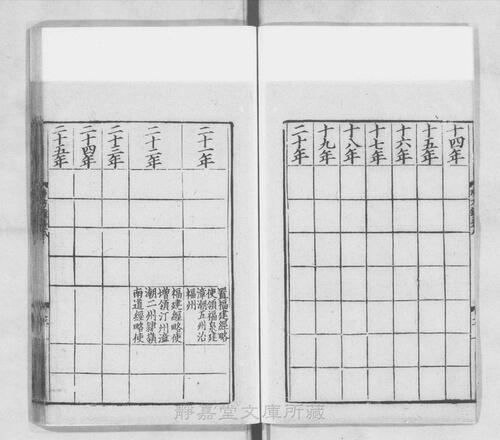 十四年
十五年
十六年
十七年
十八年
十九年
二十年
二十一年
置福建經略
使領福泉建
漳潮五州治
福州
二十二年
福建經略使
增領汀州漳
潮二州隸嶺
南道經略使
二十三年
二十四年
二十五年
靜嘉堂文庫所藏